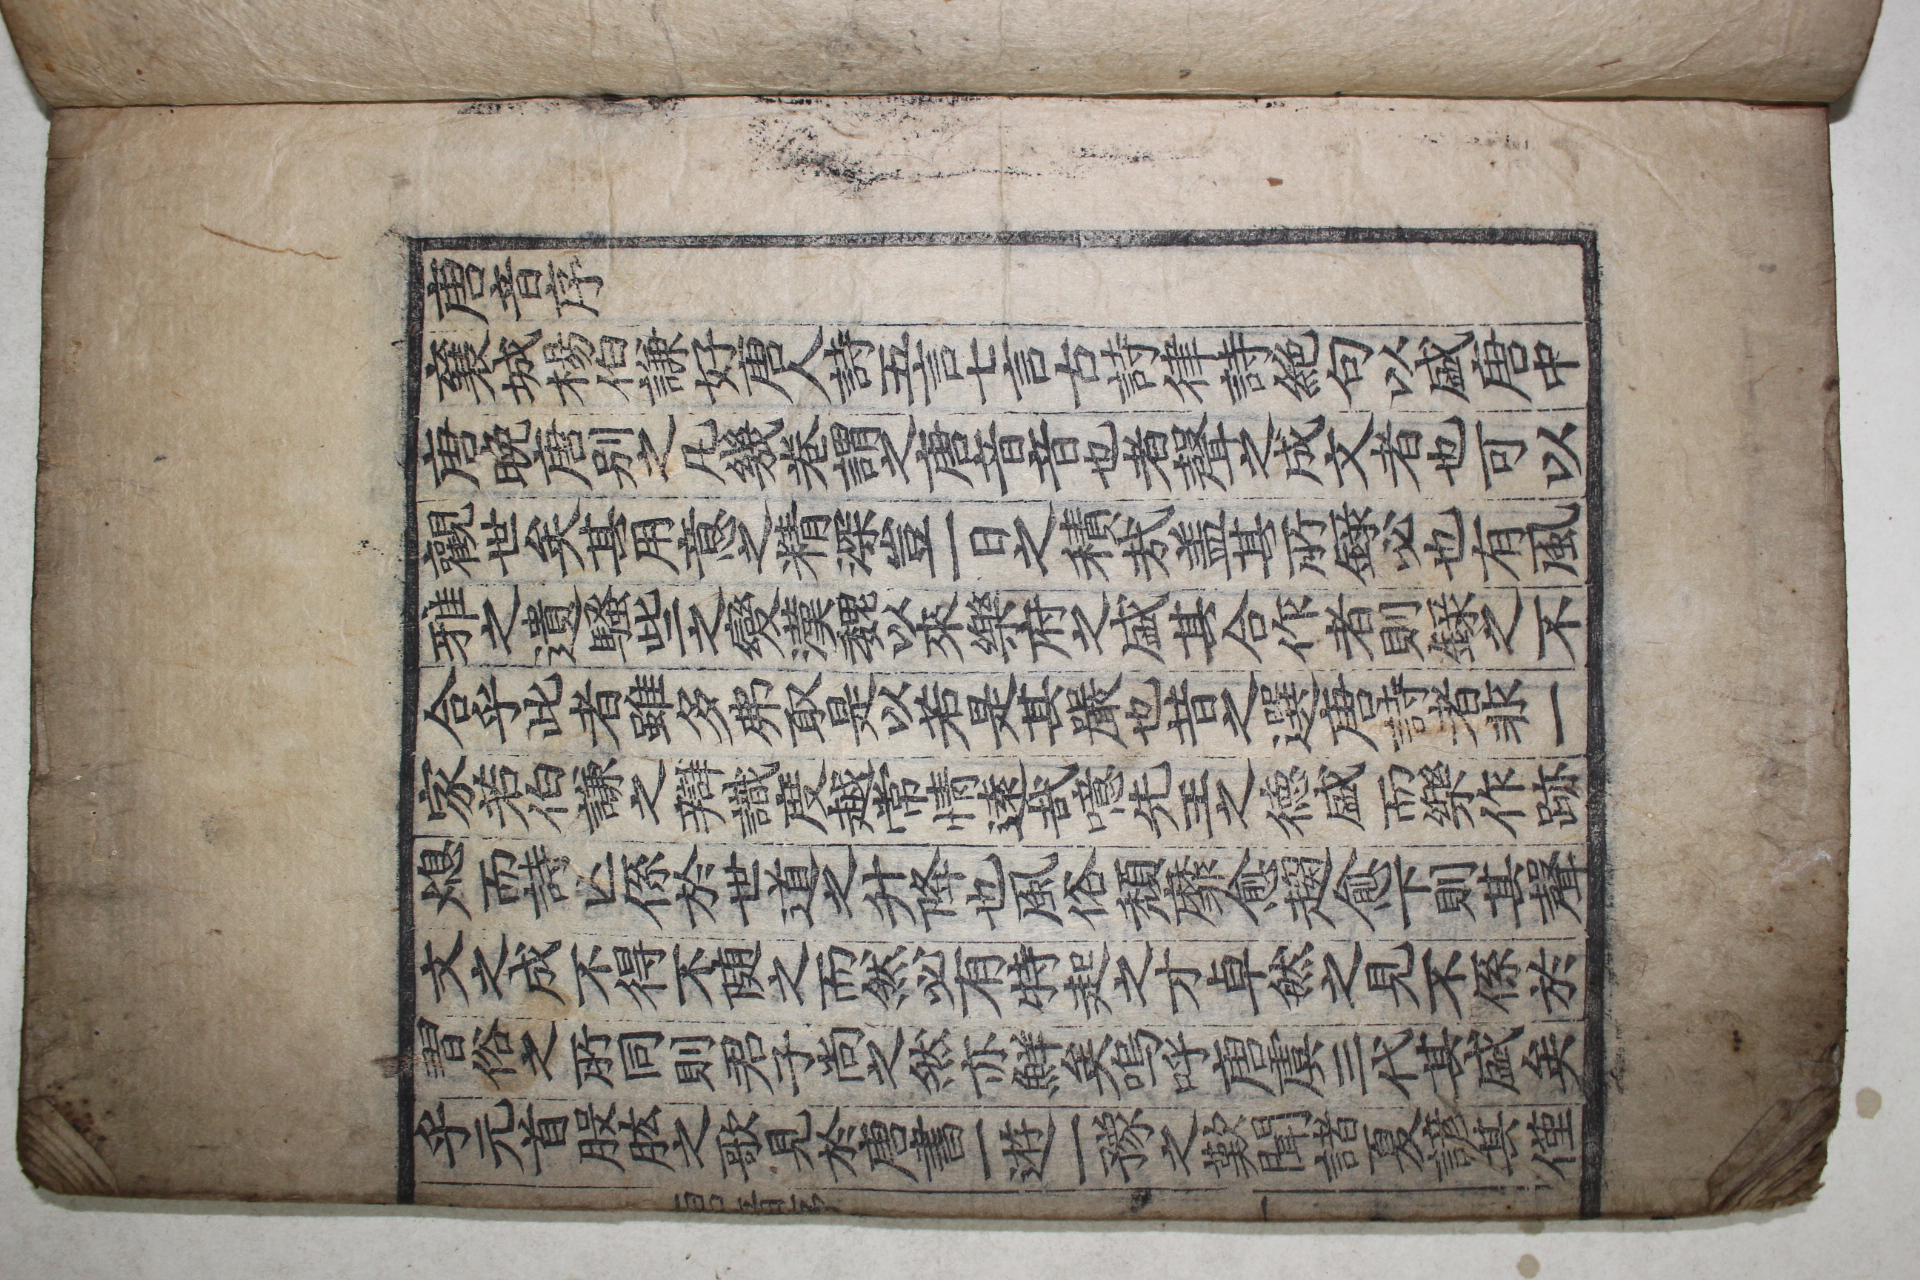 唐音序
襄城楊伯謙好唐人詩五言七言古詩律詩絶句以盛唐中
唐晚唐別之凡幾卷謂之唐音音也者聲之成文者也可以
觀世矣其用意之精深豈一日之積哉盖其所録必也有風
雅之遺騷些之變漢魏以來樂府之盛其合作者則録之不
合乎此者雖多弗取是以若是其嚴也昔之選唐詩者非一
家若伯謙之辯識度越常情遠哉噫先王之德盛而樂作跡
熄而詩亡係於世道之升降也風俗頹靡愈趨愈下則其聲
文之成不得不隨之而然必有特起之才卓然之見不係於
習俗之所同則君子尚之然亦鮮矣嗚呼唐虞三代其盛矣
乎元首股肱之歌見於唐書一遊一豫之歎聞諸夏諺其僅